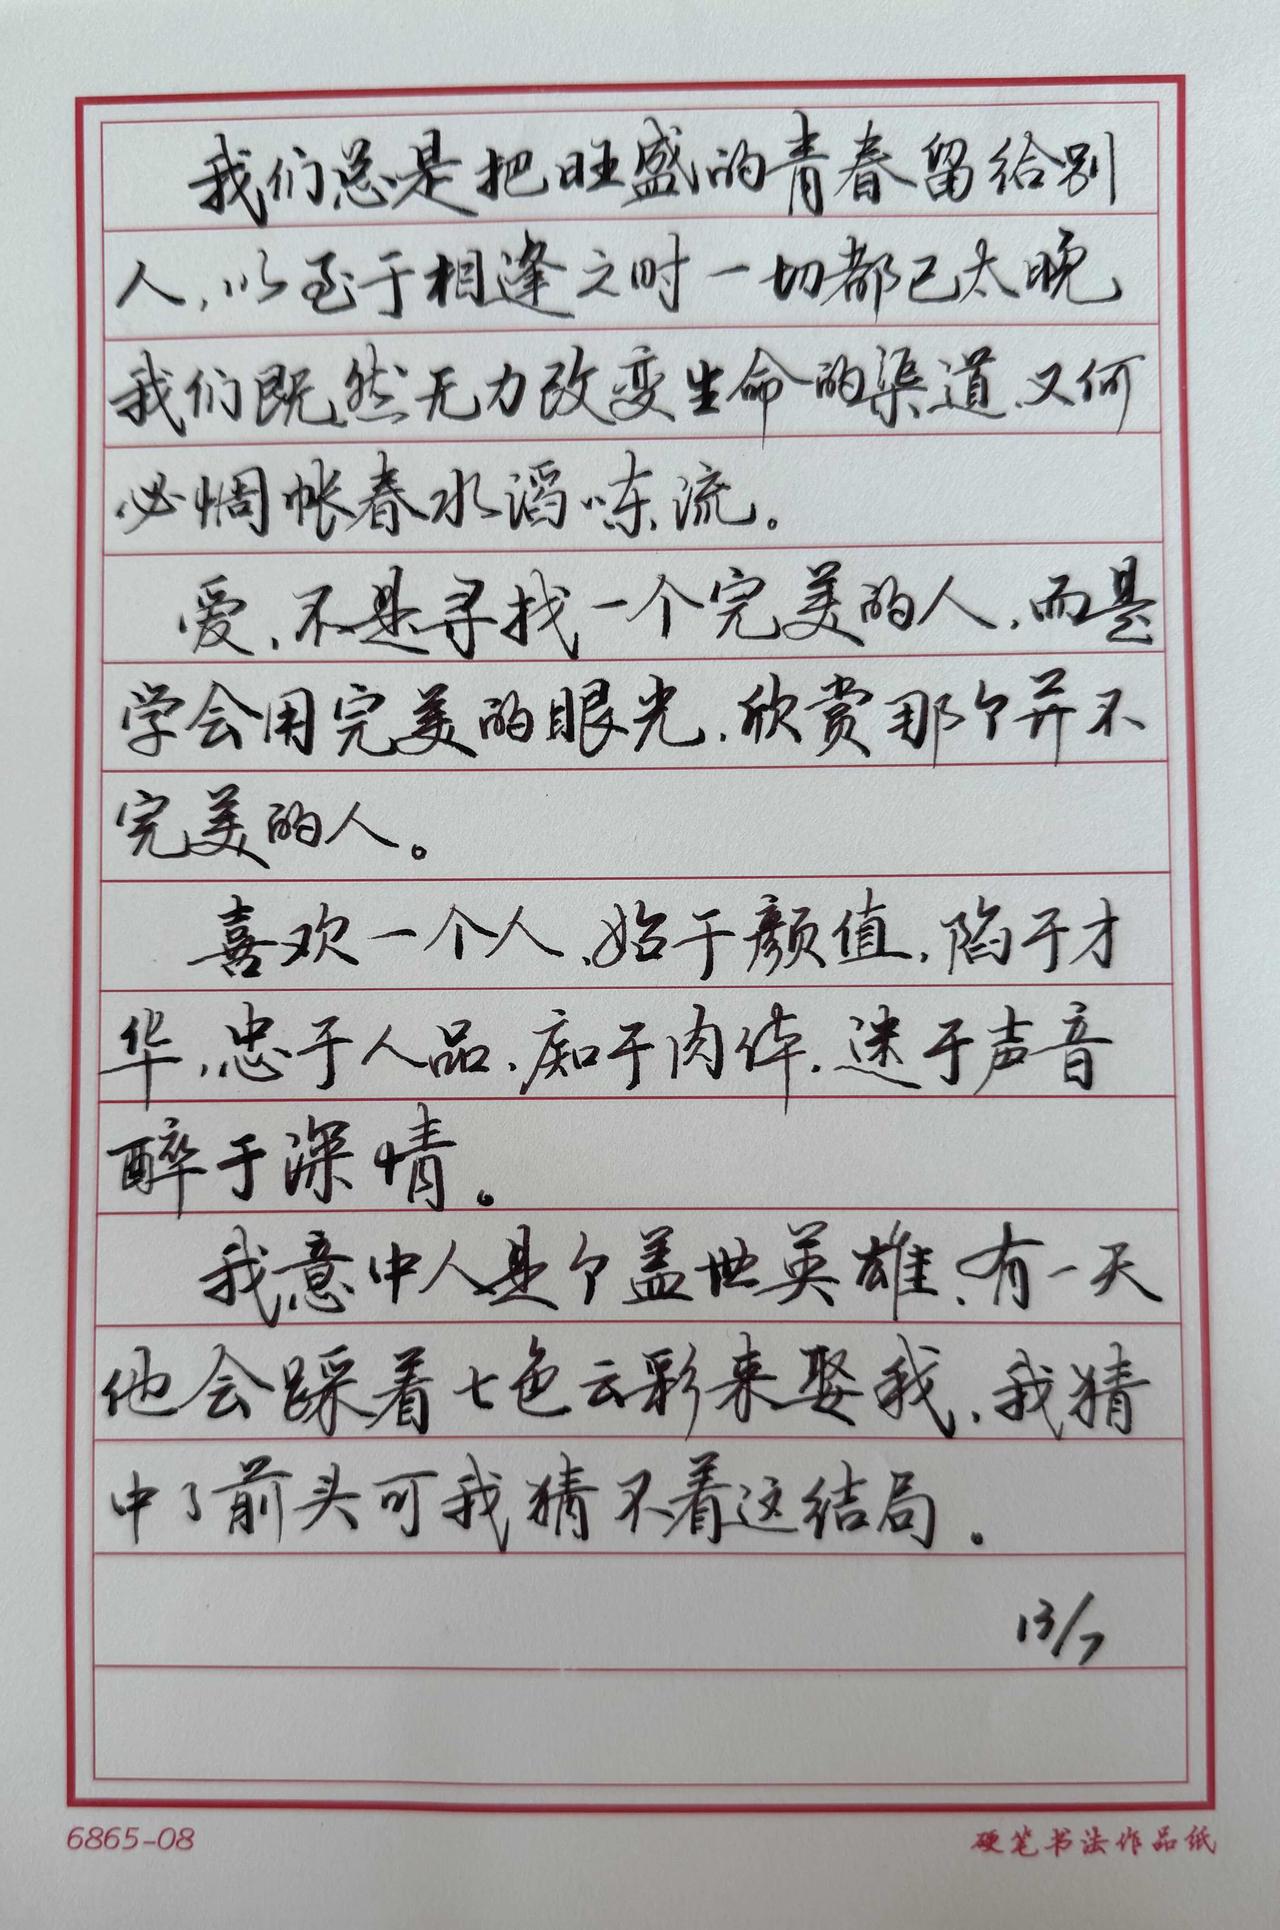 我们总是把旺盛的青春留给别
人,以至于相逢之时一切都已太晚
我们既然无力改变生命的渠道、又何
必惆帐春水滔东流。
爱,不是寻找一个完美的人,而是
学会用完美的眼光,欣赏那个并不
完美的人。
喜欢一个人、始于颜值,陷于才
华,忠于人品、痴于肉体,迷于声音
醉于深情。
我意中人是个盖世英雄、有一天
他会踩着七色云彩来娶我,我猜
中了前头可我猜不着这结局。
13/7
6865-08
硬笔书法作品纸